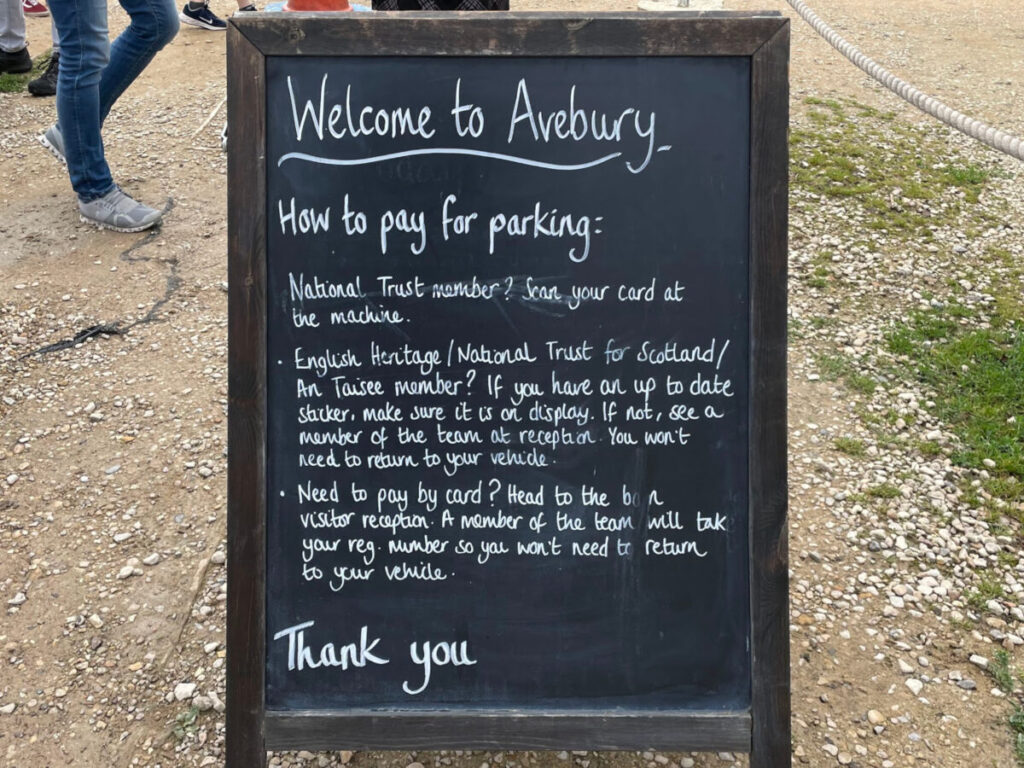 Welcome to Avebury
How to pay for parking:
National Trust member? Scan your card at
the machine.
• English Heritage/National Trust for Scotland/
An Taisee member? If you have an up to date
sticker, make sure it is on display. If not, see a
member of the team at reception. You won't
need to return to your vehicle.
• Need to pay by card? Head to the
visitor reception. A member of the team will tak
your reg. number so you won't need to return
to your vehicle.
Thank you